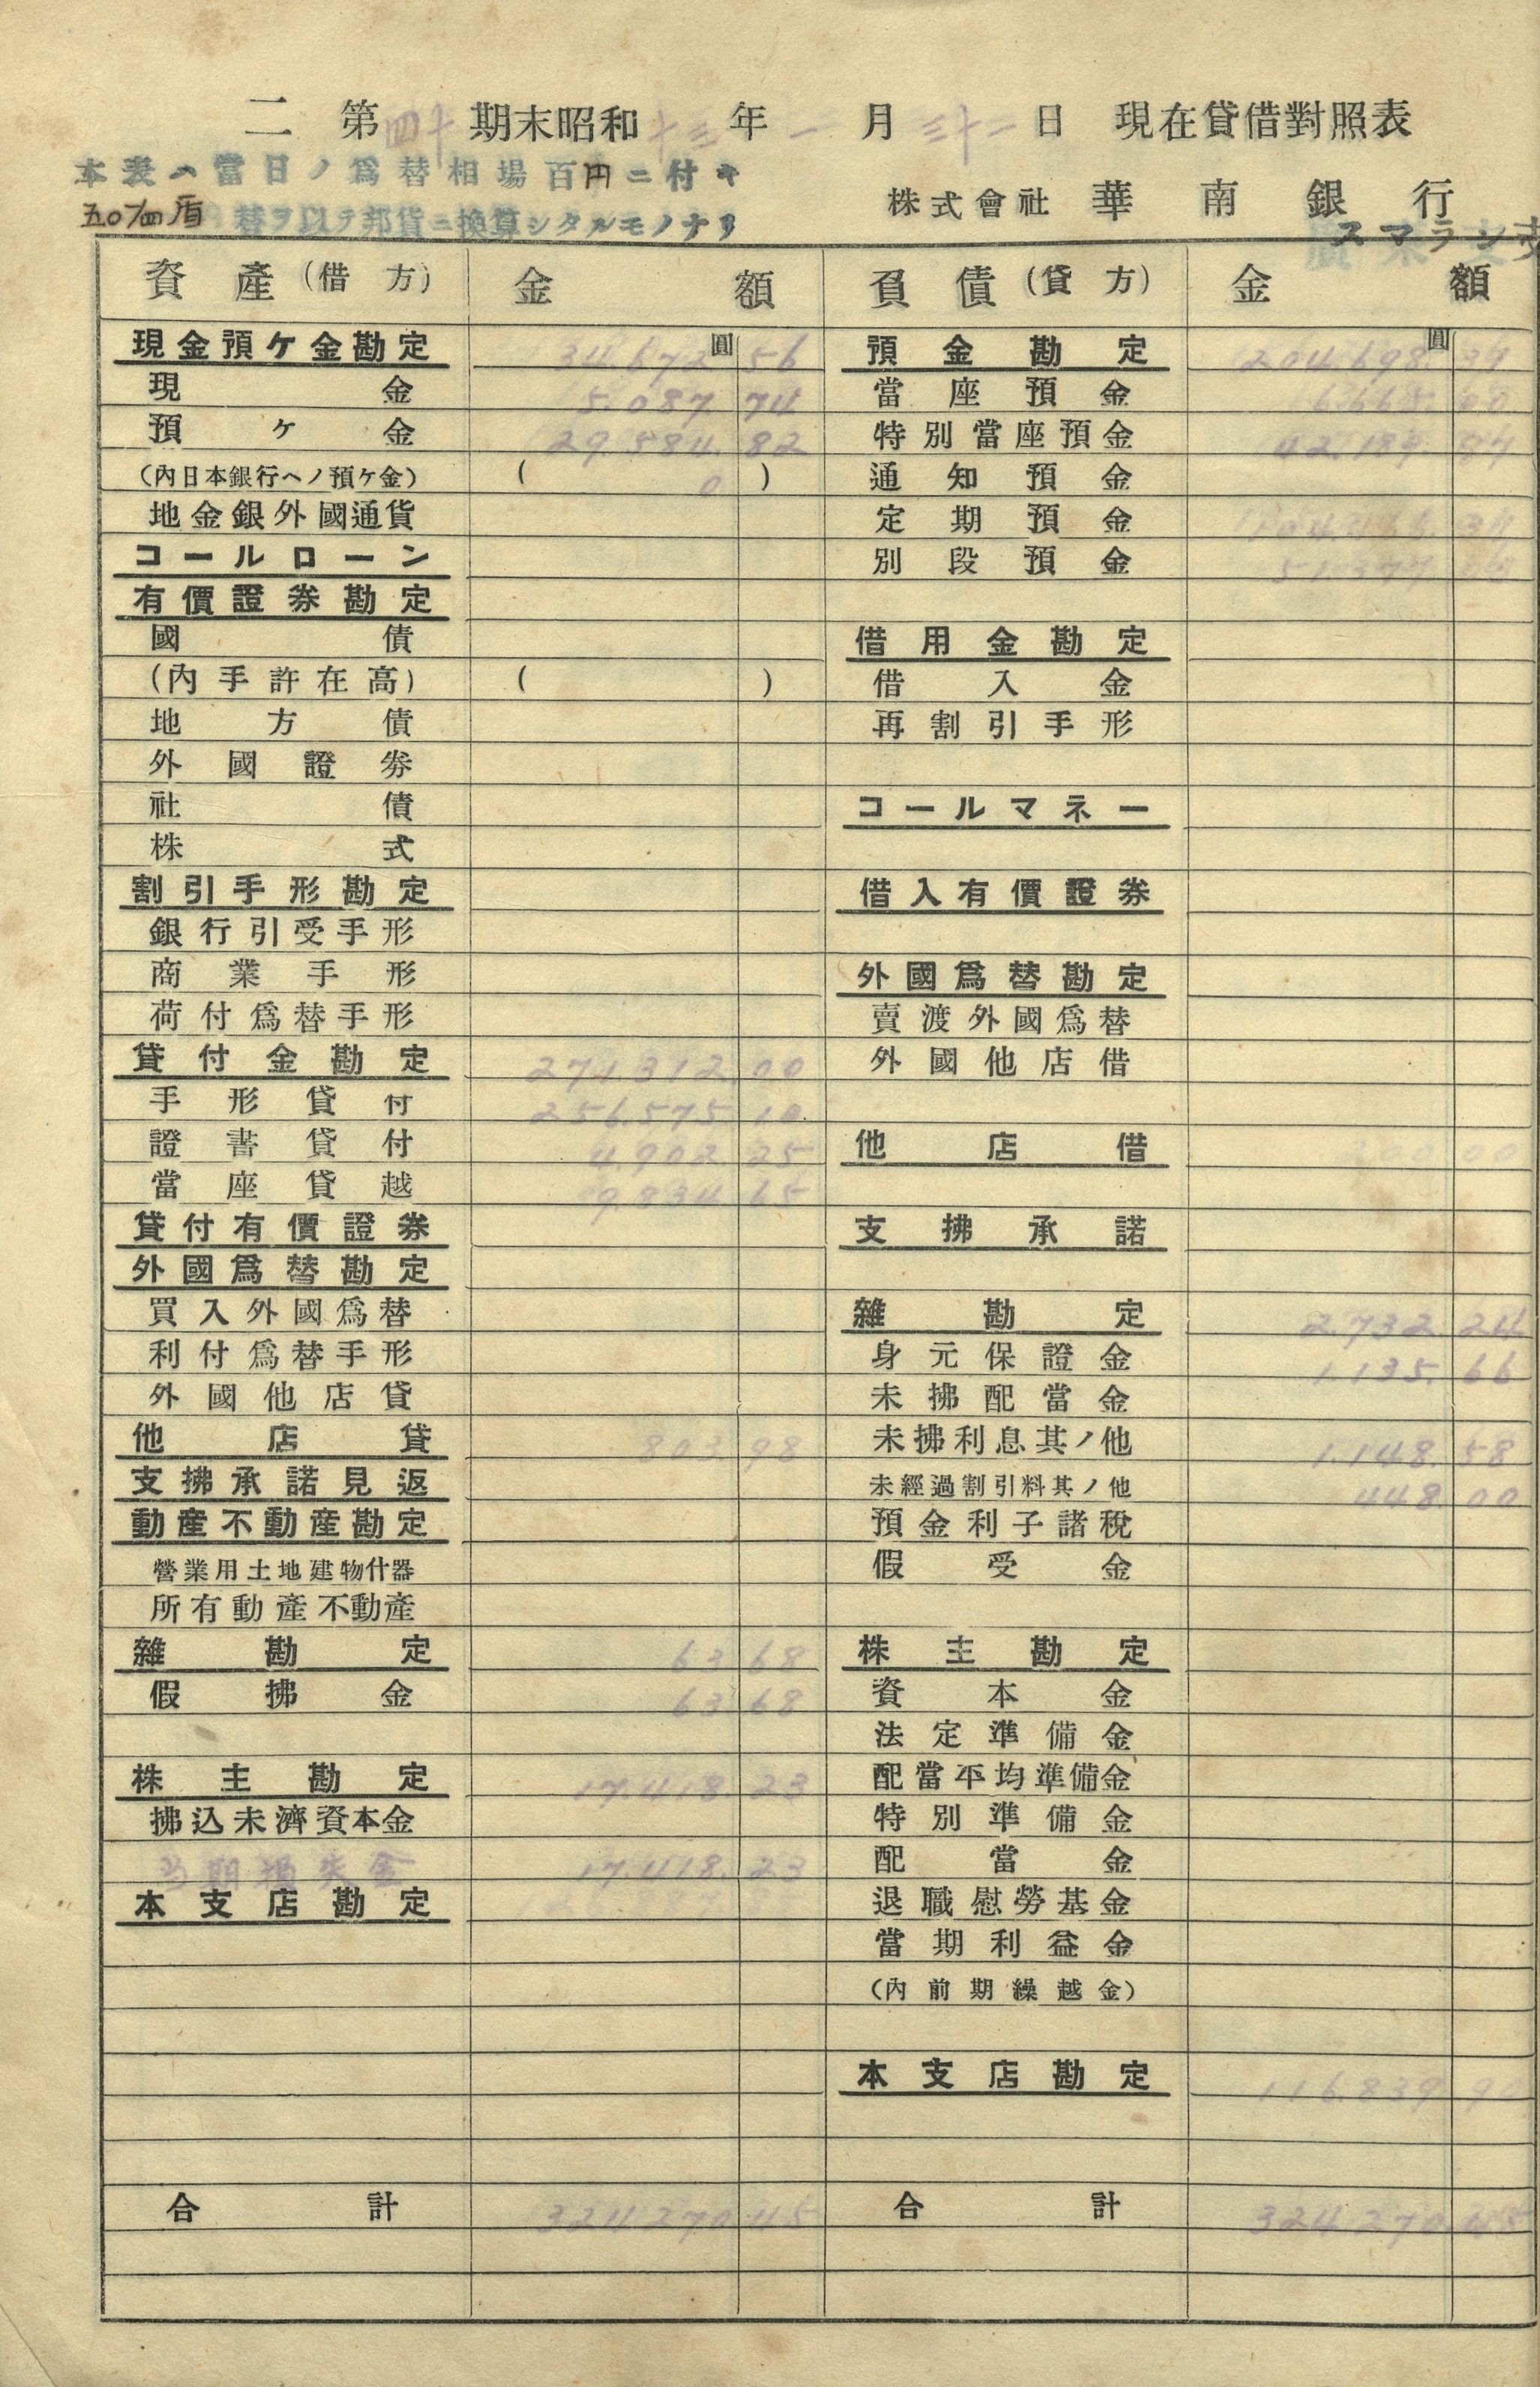 二 第四十期末昭和十三年 月三十一日 現在貸借對照表
本表ハ當日ノ爲替相場百円ニ付キ
替ヲ以テ邦貨ニ換算シタルモノナリ
株式會社 華南銀行
スマラン支
資產(借方) 金額 負債(貸方) 金額
現金預ケ金勘定 34.672圓56 預金勘定 204.698.圓
現金 5.087 74 當座預金
預ケ金 29.584.82 特別當座預金
(內日本銀行ヘノ預ケ金) ( 0 ) 通知預金
地金銀外國通貨 定期預金
コールローン 別段預金
有價證券勘定
國債 借用金勘定
(內手許在高) ( ) 借入金
地方債 再割引手形
外國證劵
社債 コールマネー
株式
割引手形勘定 借入有價證券
銀行引受手形
商業手形 外國爲替勘定
荷付爲替手形 賣渡外國爲替
貸付金勘定 271.312.00 外國他店借
手形貸付 256.575.10
證書貸付 4.902.25 他店借
當座貸越 9.834 65
貸付有價證券 支拂承諾
外國爲替勘定
買入外國爲替 雜勘定 2.732 24
利付爲替手形 身元保證金 1.135.66
外國他店貸 未拂配當金
他店貸 803.98 未拂利息其ノ他 1.148.58
支拂承諾見返 未經過割引料其ノ他 448.00
動產不動產勘定 預金利子諸稅
營業用土地建物什器 假受金
所有動產不動產
雜勘定 63 68 株主勘定
假拂金 63 68 資本金
法定準備金
株主勘定 17.418.23 配當平均準備金
拂込未濟資本金 特別準備金
当期損失金 17.418.23 配當金
本支店勘定 退職慰勞基金
當期利益金
(內前期繰越金)
本支店勘定 116.839
合計 324 270 45 合計 324 270.45